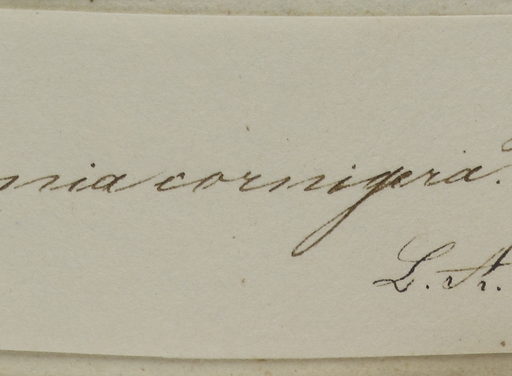 nia cornigera.
L. A.